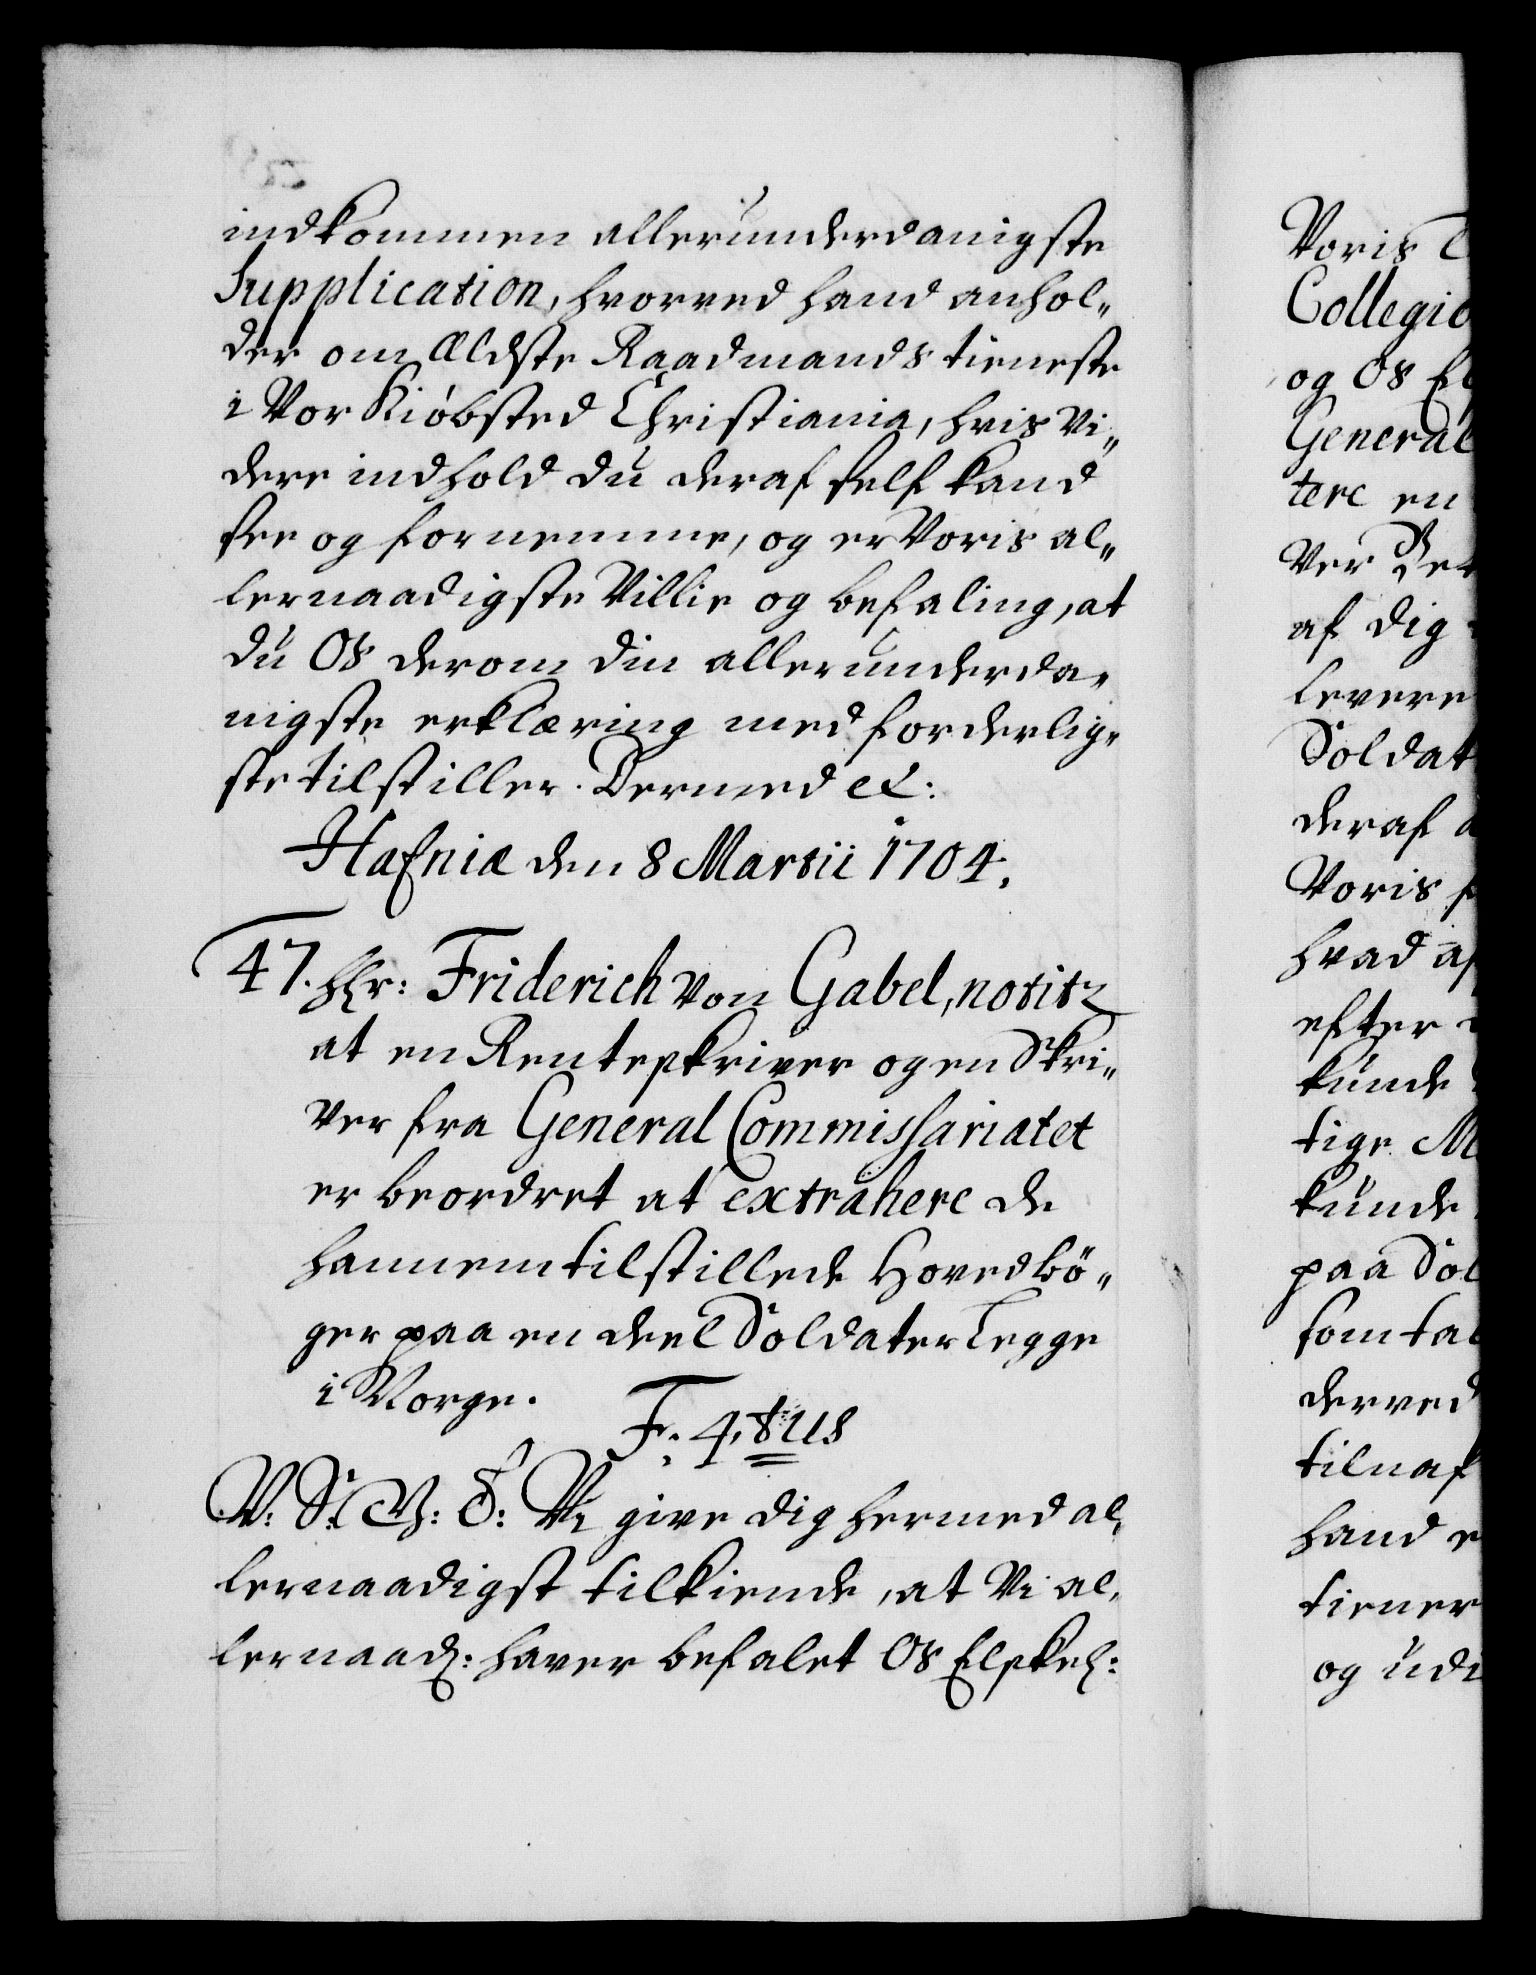 indkommen allerunderdanigste
Supplication, hvorved hand anhol„
der om Ældste Raadmands tieneste
i Vor Kiöbsted Christiania, hvis vi„
dere indhold du deraf self kand
see og fornemme, og er Voris al„
lernaadigste Villie og befaling, at
du Os derom din allerunderda„
nigste erklæring med forderlig„
ste tilstiller. Dermed etc:
Hafniæ den 8 Martii 1704.
47. Hr: Friderich von Gabel, notitz
at en Renteskriver og en Skri„
ver fra General Commissariatet
er beordret at extrahere de
hannem tilstillede Hovedbö„
ger paa en deel Soldater Legge
i Norge.
F: 4tus
V: S: G: T: Vi give dig hermed al„
lernaadigst tilkiende, at Vi al„
lernaad: haver befalet Os Elskel:
Voris
Collegio
og Os El
General
tere en
ver
af dig
levere
Soldat
deraf
Voris
hvad af
efter
kunde
tige
kunde
paa Sol
som tal
derved
til
hand
tiener
og ud